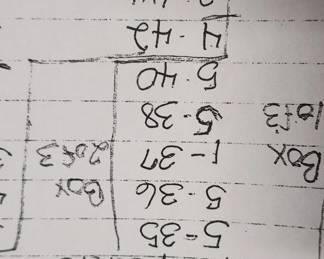 5=35
5-36 Box
Box 1-37 2 of 3
1 of 3 5-38
5-40
4-42